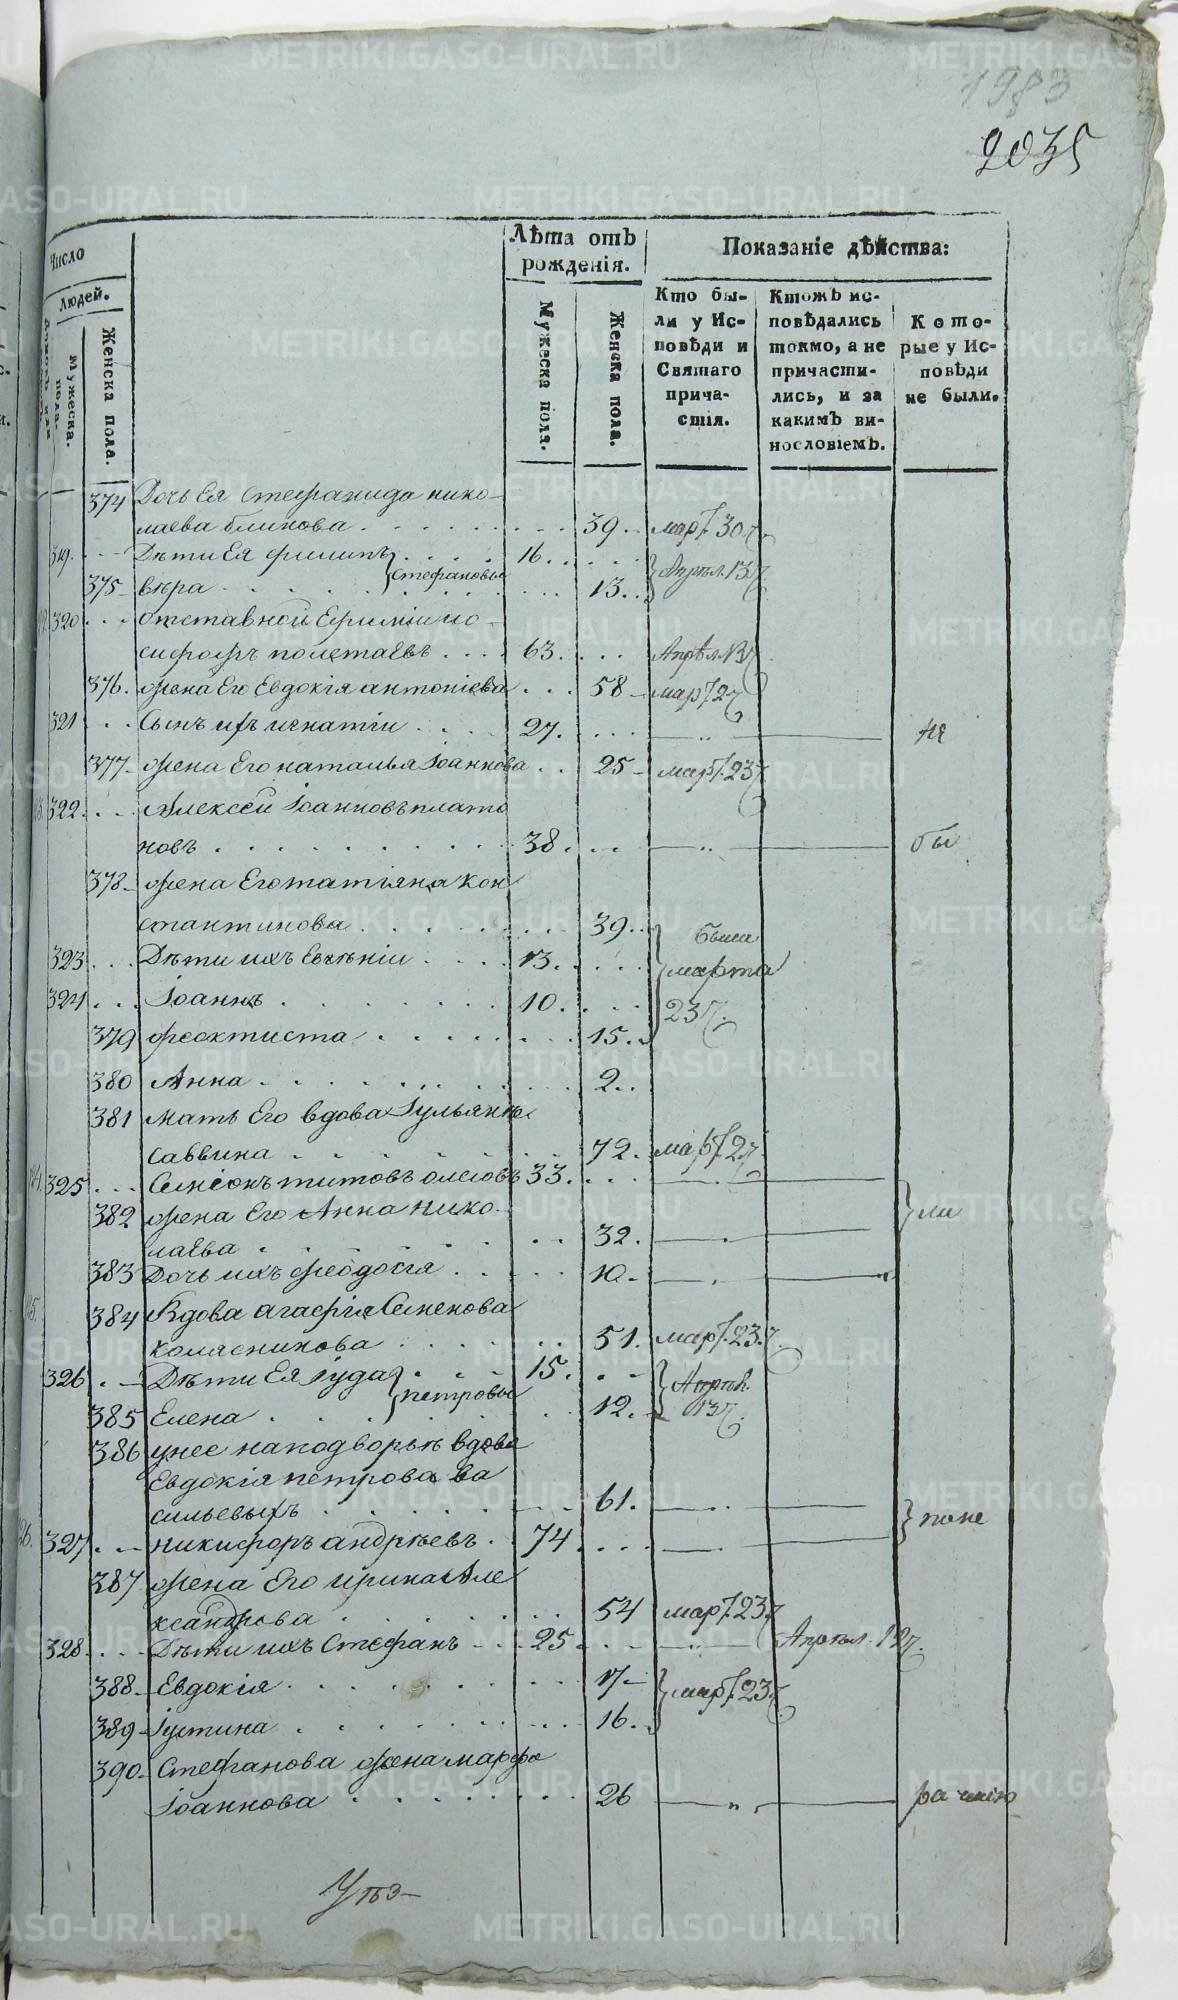 1983
2035
Число
Людей.
Мужеска пола.
Женска пола.
Лѣта отъ рожденія.
Мужеска пола.
Женска пола.
Показаніе дѣйства:
Кто были у Исповѣди и Святаго причастія.
Ктожъ исповѣдались токмо, а не причастились, и за какимъ винословіемъ.
Которые у Исповѣди не были.
374 Дочь Ея Стефанида нико-
лаева блинова 39 мар. 30
319 Дѣти Ея филипъ 16
Стефановы Апрѣл. 13
375 вѣра 13
320 отставной Ефимій ио-
сифовъ полетаевъ 63 Апрѣл. 13
376 жена Его Евдокія антоніева 58 мар. 27
321 Сынъ ихъ игнатій 27 не
377 жена Его наталья Іоаннова 25 мар. 23
322 Алексей Іоанновъ плато
новъ 38 бы
378 жена Его татіяна кон
стантинова 39 были
323 Дѣти ихъ Евгеній 13 марта
324 Іоаннъ 10 23
379 феоктиста 15
380 Анна 2
381 мать Его вдова Іульянія
саввина 72 мар. 27
325 Симеонъ титовъ 33
382 жена Его Анна нико-
лаева 32 ли
383 Дочь ихъ феодосія 10
384 Вдова агафія Семенова
колясникова 51 мар. 23
326 Дѣти Ея Іуда 15
петровы Апрѣл. 13
385 Елена 12
386 унее на подворьѣ вдова
Евдокія петрова ва
сильевыхъ 61
327 никифоръ андрѣевъ 74 поне
387 жена Его ирина Але
ксандрова 54 мар. 23
328 Дѣти ихъ Стефанъ 25 Апрѣл.
388 Евдокія 17 мар. 23
389 Іустина 16
390 Стефанова жена марфа
Іоаннова 26 ра